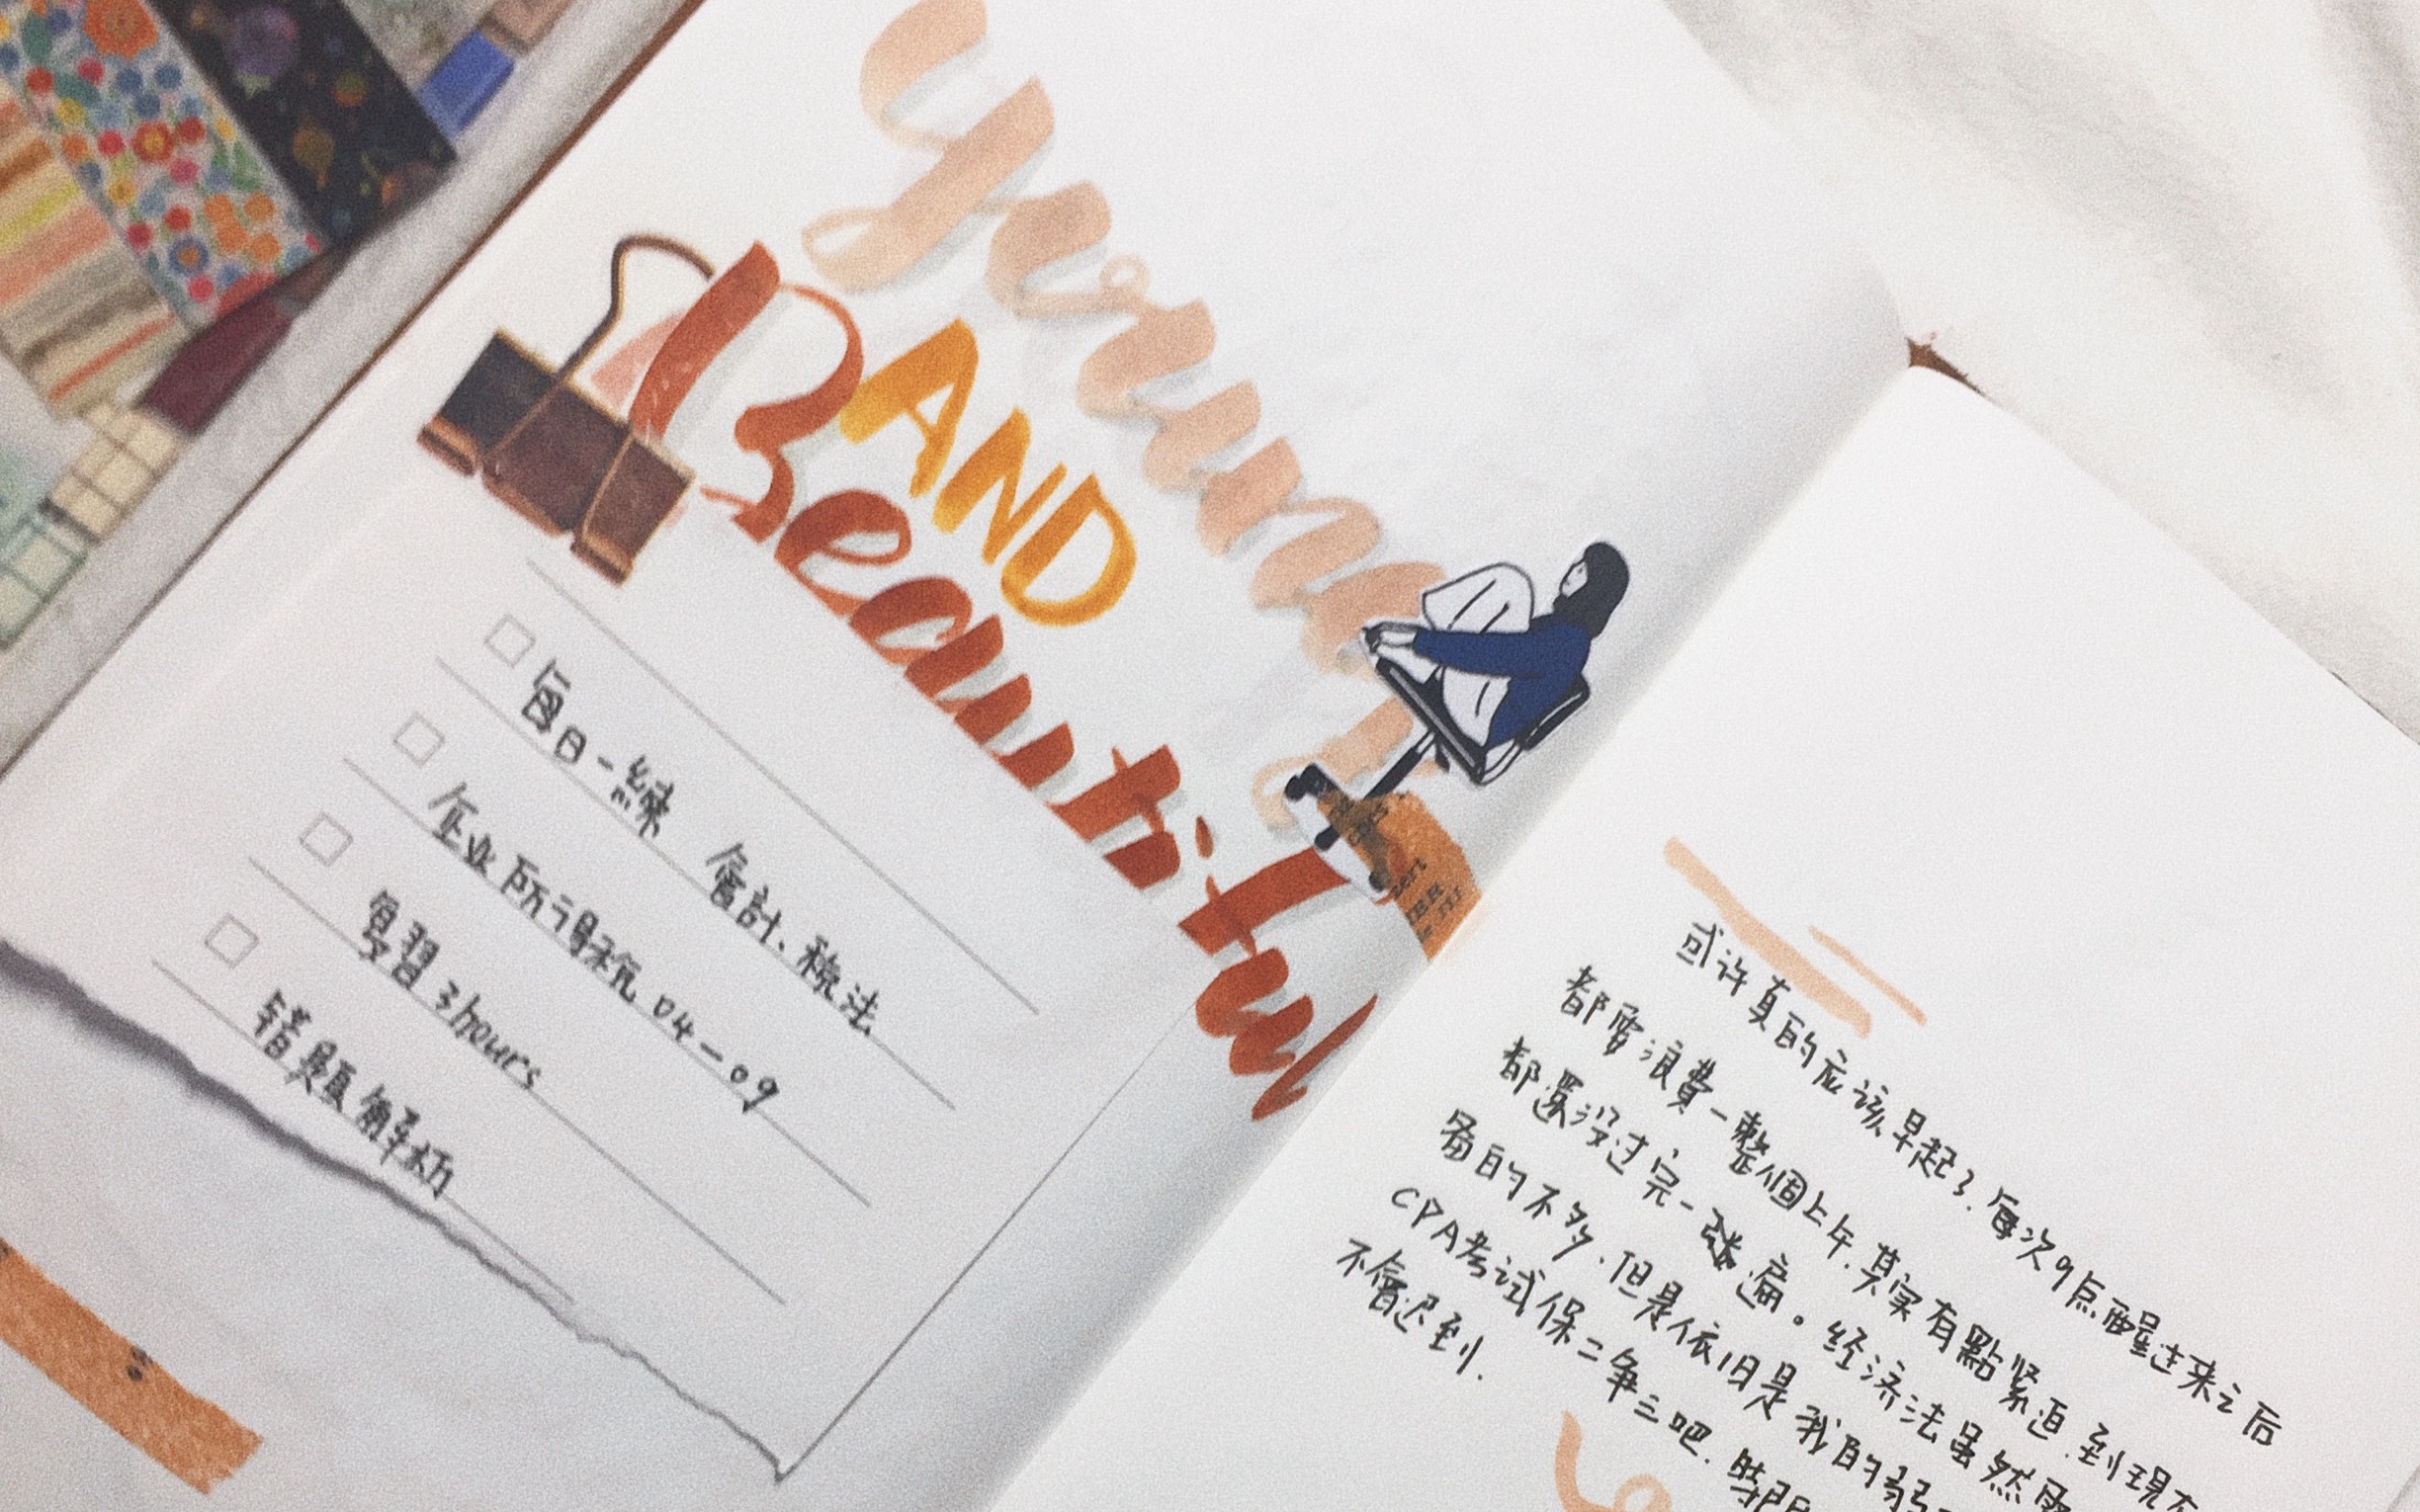 young
AND
Beautiful
每日一練 會計、稅法
企业所得稅 04-09
複習 3hours
錯題解析
或许真的应该早起了.每次9点醒过来之后
都要浪費一整個上午.其実有點紧迫.到現在
都還没过完一遍。经济法虽然需
备的不多.但是依旧是我的弱
CPA考试保二争三吧.
不會迟到.